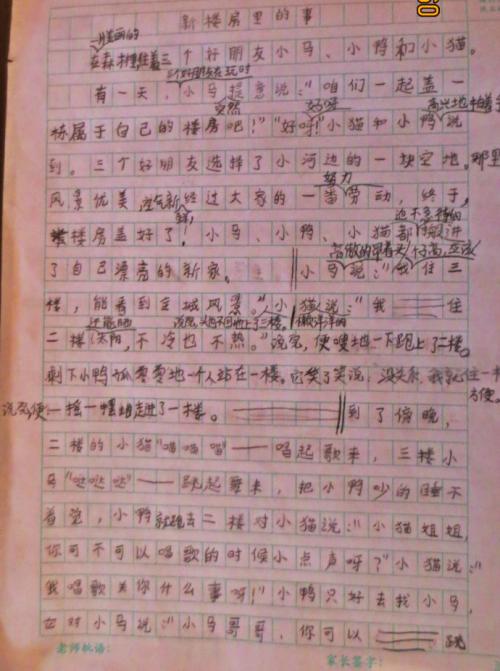 新楼房里的事
美丽的
在森林里住着三个好朋友小马、小鸭和小猫。
三个好朋友在玩时
有一天，小马提意说:"咱们一起盖一
突然 好呀 高兴地拍着手
栋属于自己的楼房吧!""好呀!"小猫和小鸭说
到。三个好朋友选择了小河边的一块空地。那里
努力
风景优美，空气新鲜，经过大家的一番劳动，终于，
楼房盖好了，小马、小鸭、小猫都搬进
了自己漂亮的新家。小马说:"我住三
楼，能看到全城风景。"小猫说:"我住
还能晒 说完，头也不回地上了三楼。 懒洋洋的
二楼太阳，不冷也不热。"说完，便嗖地一下跑上了二楼。
剩下小鸭孤零零地一个人站在一楼。它笑了笑说:没关系，我就住一
方便。
说完便一摇一摆地走进了一楼。到了傍晚，
二楼的小猫"喵喵喵"——唱起歌来，三楼小
马"哒哒哒"——跳起舞来，把小鸭吵的睡不
着觉，小鸭就跑去二楼对小猫说:"小猫姐姐，
你可不可以唱歌的时候小点声呀?"小猫说:"
我唱歌关你什么事呀!"小鸭只好去找小马，
它对小马说:"小马哥哥，你可以跳
老师批语: 家长签字: